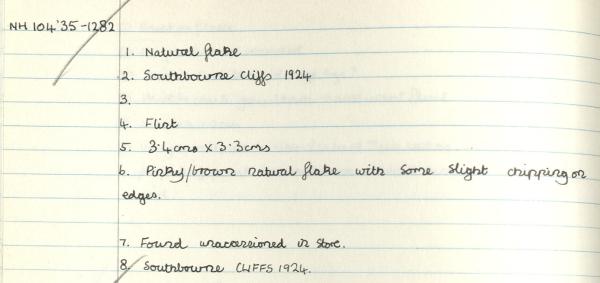 NH 104'35-1282
1. Natural flake
2. Southbourne Cliffs 1924
3.
4. Flint
5. 3.4cms x 3.3cms
6. Pinky/brown natural flake with some slight chipping on
edges.
7. Found unaccessioned in store.
8. Southbourne CLIFFS 1924.